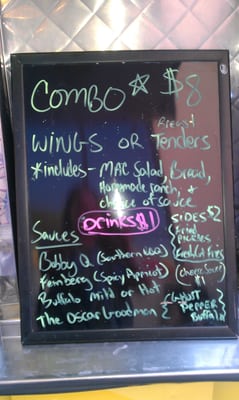 COMBO $8
Breast
WINGS OR Tenders
*includes - MAC Salad, Bread,
Homemade ranch, &
choice of sauce
Drinks $1
SIDES $2
Sauces
(Fried
pickles
Bobby Q (Southern BBQ)
(Fresh Cut fries
Feinberg (Spicy Apricot)
(cheese sauce
$1
Buffalo Mild or Hot
The Oscar Goodman { (WHITE
PEPPER
Buffalo)